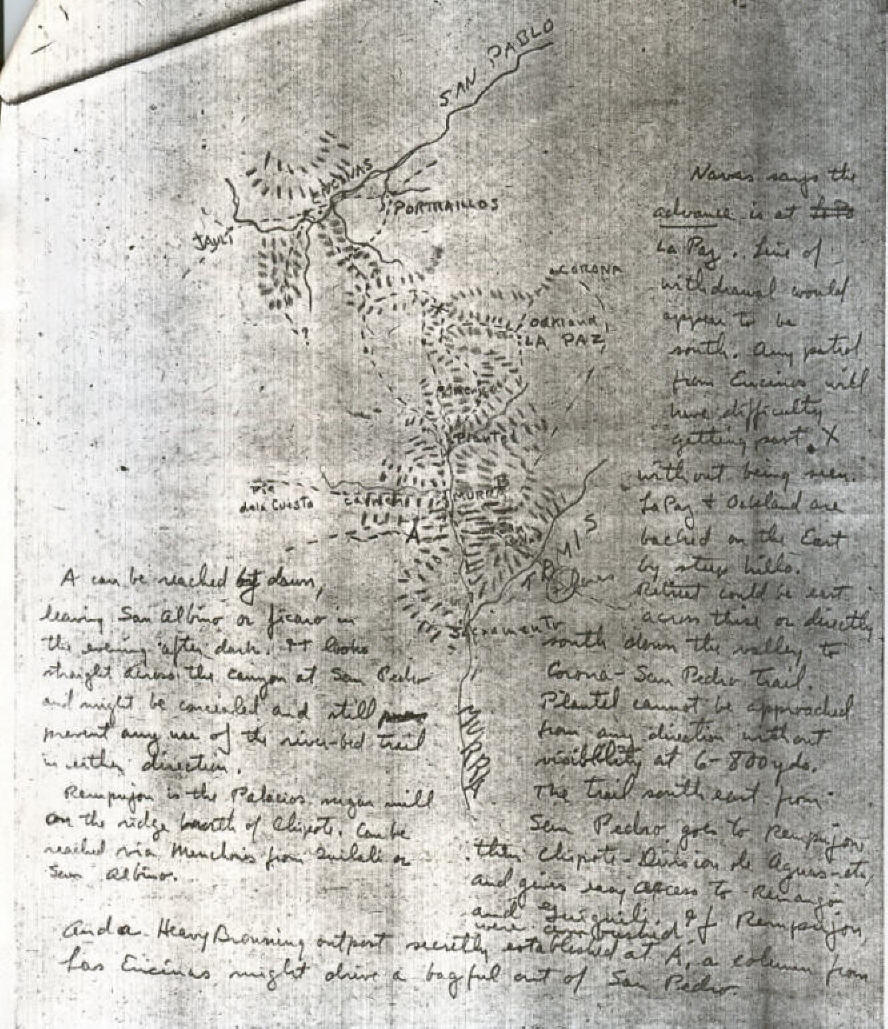 SAN PABLO
LAS CIVAS
PORTRAILLOS
JAULI
CORONA
OAKLAND
LA PAZ
?
Plantel
Pta
de la Cuesta
MURRA
A
San Pedro
Sacramento
MURRA
Navas says the
advance is at
La Paz. Line of
withdrawal would
appear to be
south. Any patrol
from Encinos will
have difficulty
getting past X
without being seen.
La Paz & Oakland are
backed on the East
by steep hills.
Retreat could be east
across these or directly
south down the valley to
Corona - San Pedro trail.
Plantel cannot be approached
from any direction without
visibility at 6-800 yds.
The trail south east from
San Pedro goes to Rempujon,
then Chipote - Division de Aguas - etc,
and gives easy access to Remango
and Guiguili. If Rempujon,
were ambushed
A can be reached by dawn,
leaving San Albino or Jicaro in
the evening after dark. It looks
straight across the canyon at San Pedro
and might be concealed and still
prevent any use of the river-bed trail
in either direction.
Rempujon is the Palacios sugar mill
on the ridge north of Chipote. Can be
reached via Menchois from Quilali or
San Albino.
and a Heavy Browning outpost secretly established at A, a column from
Las Encinas might drive a bagful out of San Pedro.